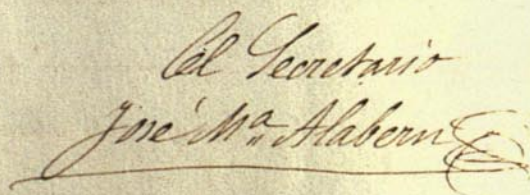 El Secretario
José Mª Alabern